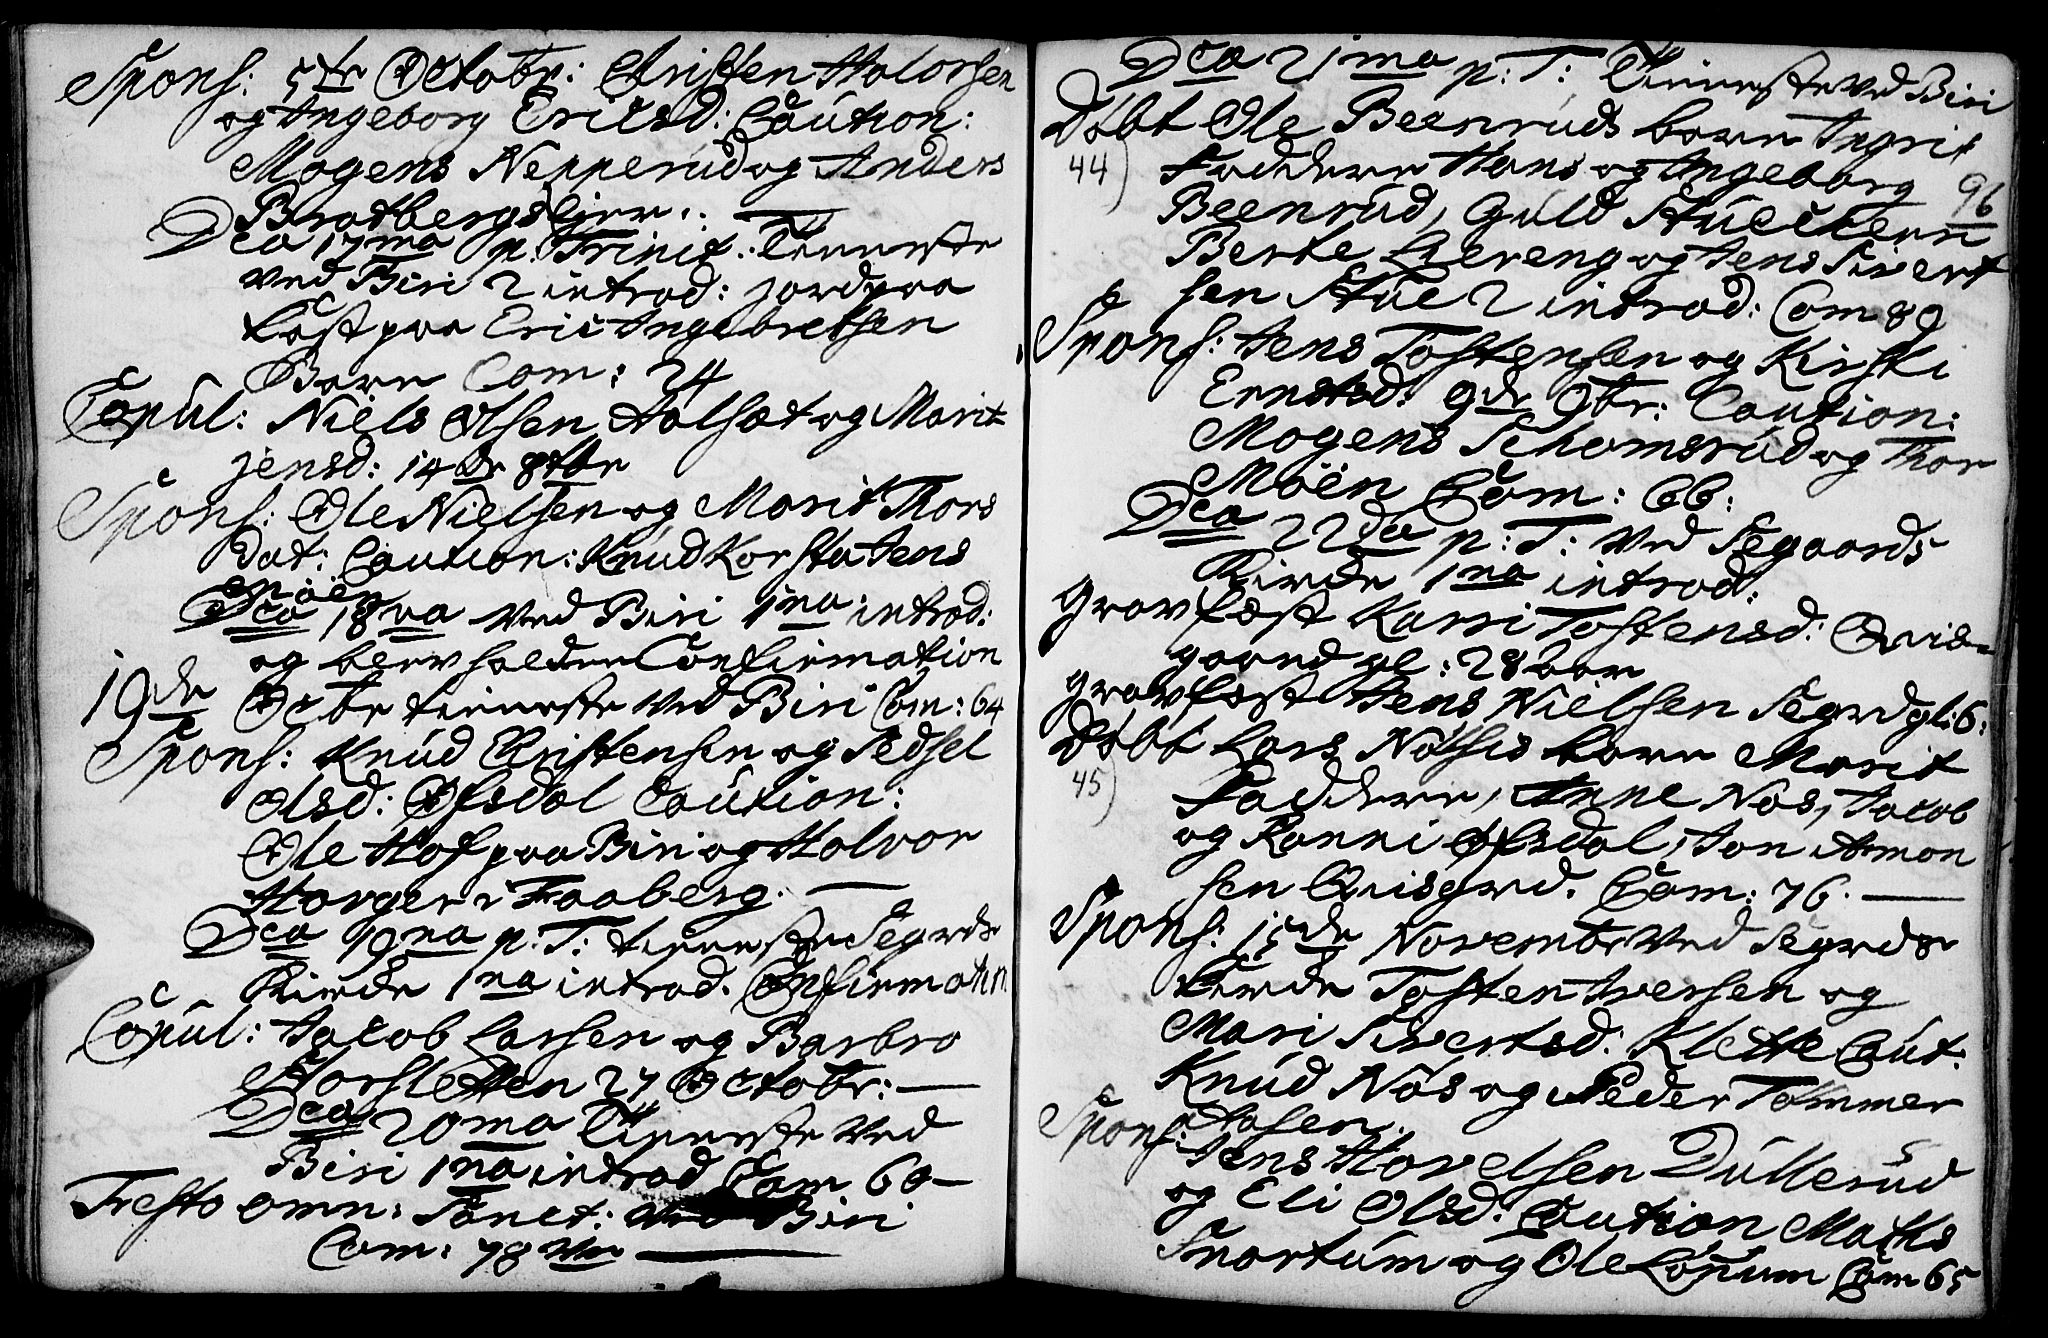 Spons: 5te Octobr: Christen Halorsen
og Ingeborg Ericsd: Caution:
Mogens Nepperud og Anders
Bratbergs
Dca 17ma p: Trinit: Tieneste
ved Biri 2 introd: jordpaa
kast paa Eric Ingebretsen
Barn Com: 24
Copul: Niels Olsen Halset og Marit
jensd: 14de 8tbr
Spons: Ole Nielsen og Marit Thors
dat: Caution: Knud Korsta Jens
Möen
Dca 18va ved Biri 1na introd:
og blev holden Confirmation
19de Octbr tieneste ved Biri Com: 64
Spons: Knud Christensen og Sedsel
Olsd: Ofsdal Caution:
Ole Hof paa Biri og Halvor
Horgen i Faaberg.
Dca 19na p: T: tieneste Segrds
Kirche 1na introd. Confirmation
Copul: Jacob Larsen og Barbro
Storsletten 27 Octobr:
Dca 20ma Tieneste ved
Biri 1na introd Com 60
Festo omn: Sanct: ved Biri
Com: 78
Dca 21ma p: T: Tieneste ved Biri
Döbt Ole Beenruds barn Ingrit
44) Faddere Hans og Ingeborg
96
Beenrud, Guld Stuckern
Berte Læreng og Jens Sivert
sen Stue 2 introd: Com 89
Spons: Jens Tostensen og Kirsti
Ernstsd: 9de 9br: Caution:
Mogens Schomsrud og Thor
Möen Com: 66:
Dca 22da p: T: ved Segaards
Kirche 1na introd:
gravfæst Karri Tostensd: Qvis
gaard gl: 28 aar
gravfæst Jens Nielsen Segrd gl: 6:
Döbt Lars Nöthis barn Marit
45) Faddere, Anne Nös, Jacob
og Ranni Ofsdal, Jon Amon
sen Qvisgrd. Com: 76.
Spons: 15de Novembr ved Segrds
Kirche Tosten Iversen og
Mari Sivertsd: Klette Caut:
Knud Nös og Peder Tömmer
hasen.
Spons: Jens Hovelsen Dullerud
og Eli Olsd: Caution Maths
Snortum og Ole Löpum Com 65